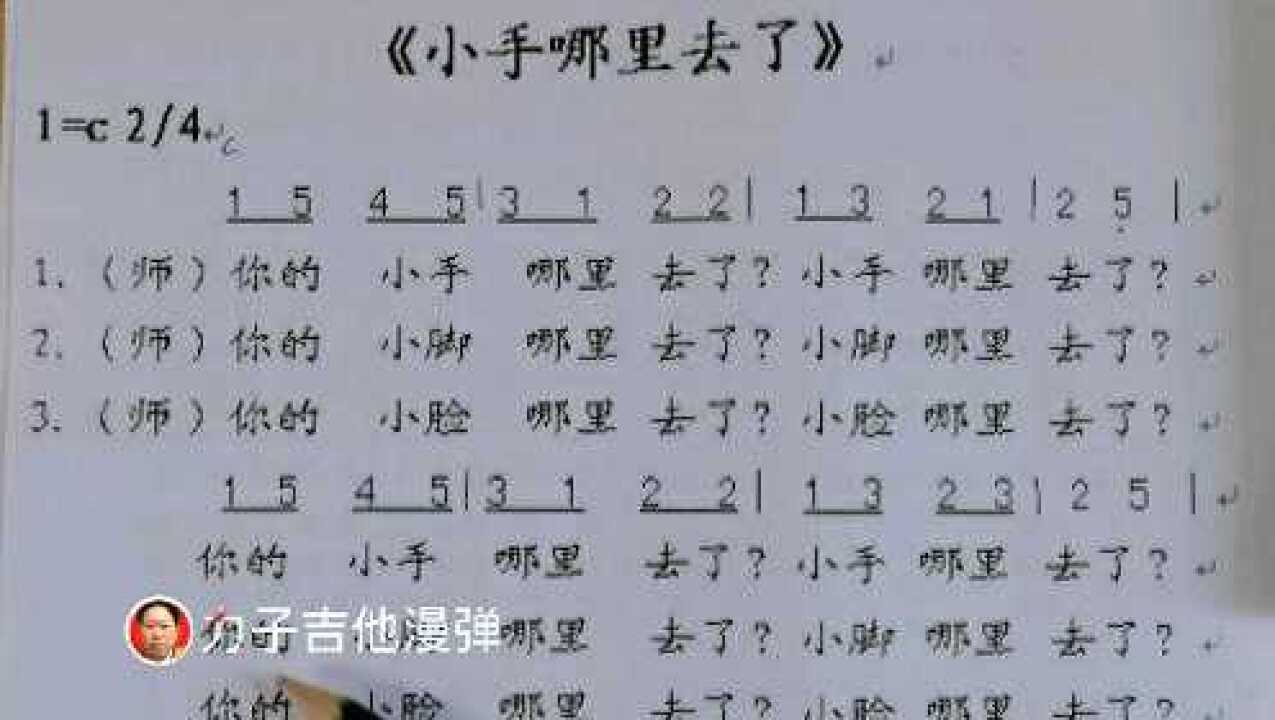 《小手哪里去了》
1=c 2/4
1 5 4 5 | 3 1 2 2 | 1 3 2 1 | 2 5̣ |
1. （师）你的 小手 哪里 去了？小手 哪里 去了？
2. （师）你的 小脚 哪里 去了？小脚 哪里 去了？
3. （师）你的 小脸 哪里 去了？小脸 哪里 去了？
1 5 4 5 | 3 1 2 2 | 1 3 2 3 | 2 5 |
你的 小手 哪里 去了？小手 哪里 去了？
你的 哪里 去了？小脚 哪里 去了？
子吉他漫弹
你的 小脸 哪里 去了？小脸 哪里 去了？